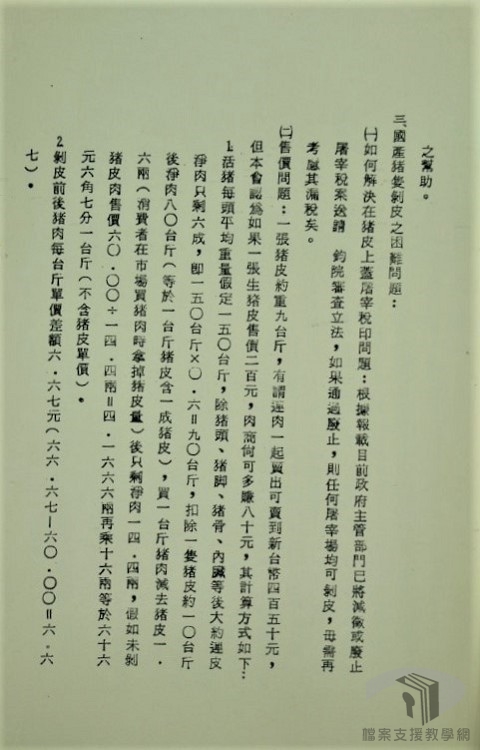 之幫助。
三、國產猪隻剝皮之困難問題：
㈠如何解決在猪皮上蓋屠宰稅印問題：根據報載目前政府主管部門已將減徵或廢止
屠宰稅案送請　鈞院審查立法，如果通過廢止，則任何屠宰場均可剝皮，毋需再
考慮其漏稅矣。
㈡售價問題：一張猪皮約重九台斤，有謂連肉一起賣出可賣到新台幣四百五十元，
但本會認爲如果一張生猪皮售價二百元，肉商尙可多嫌八十元，其計算方式如下：
1.活猪每頭平均重量假定一五〇台斤，除猪頭、猪脚、猪骨、內臟等後大約連皮
淨肉只剩六成，即一五〇台斤×〇．六＝九〇台斤，扣除一隻猪皮約一〇台斤
後淨肉八〇台斤（等於一台斤猪皮含一成猪皮），買一台斤猪肉減去猪皮一．
六兩（消費者在市場買猪肉時拿掉猪皮量）後只剩淨肉一四．四兩，假如未剝
猪皮肉售價六〇．〇〇÷一四．四兩＝四．一六六六兩再乘十六兩等於六十六
元六角七分一台斤（不含猪皮單價）。
2.剝皮前後猪肉每台斤單價差額六．六七元（六六．六七－六〇．〇〇＝六．六
七）。
檔案支援教學網